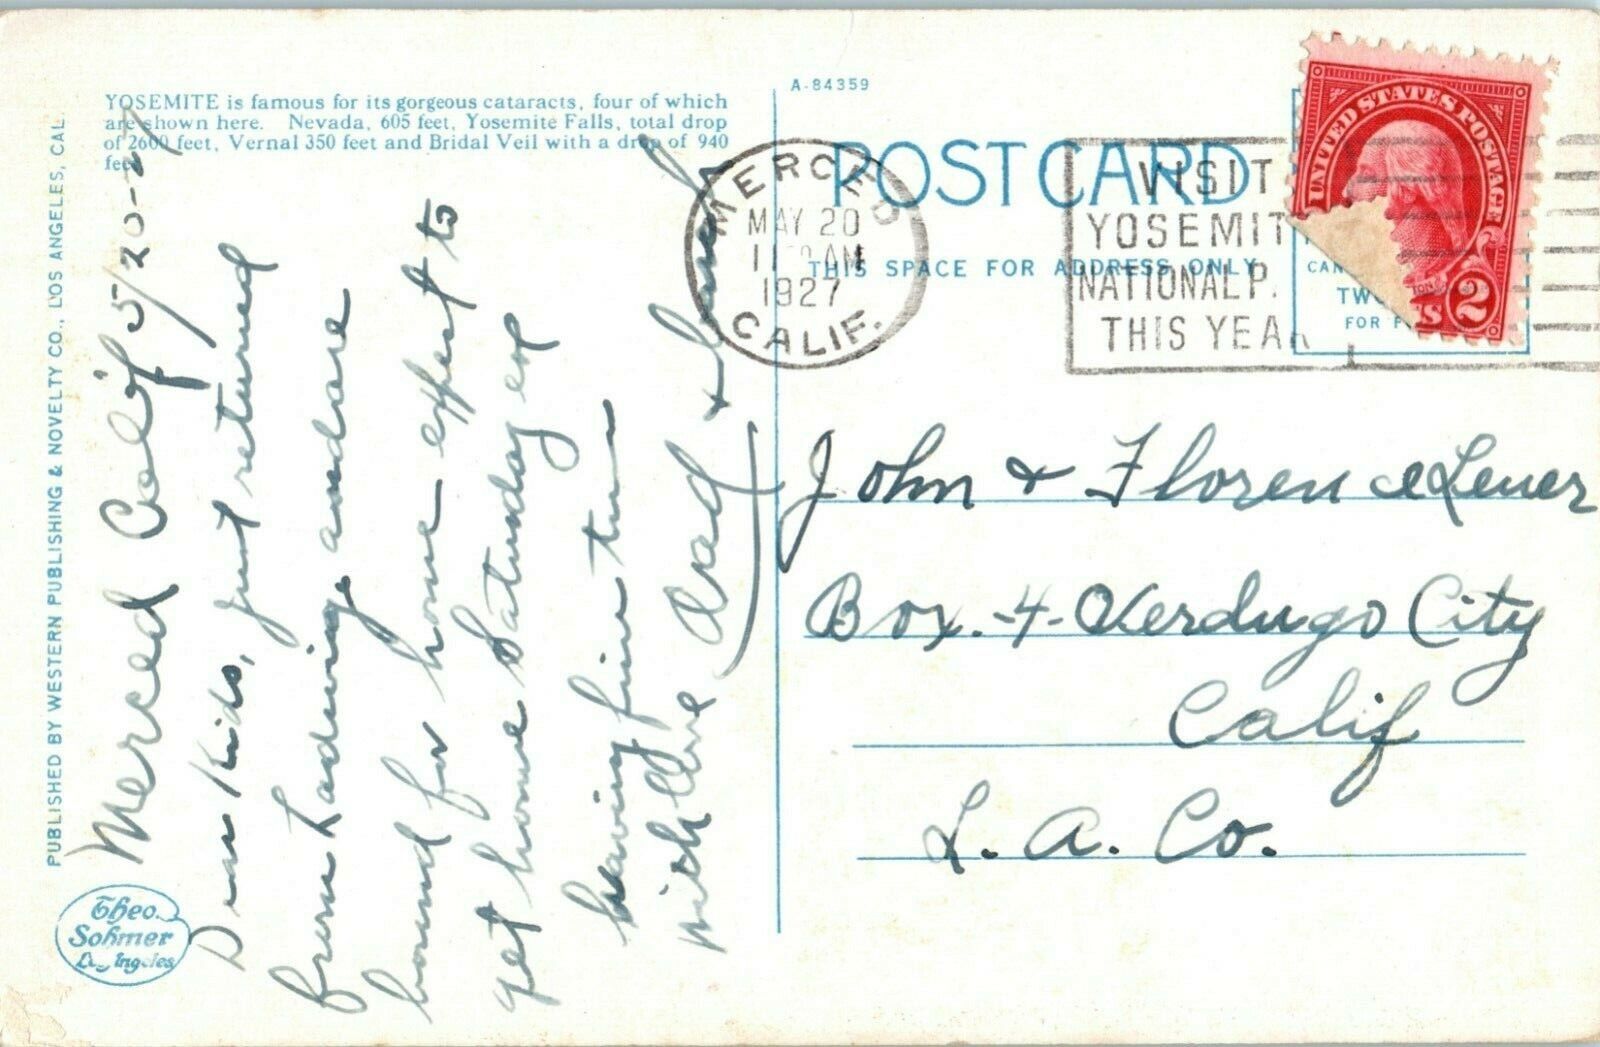 YOSEMITE is famous for its gorgeous cataracts, four of which
are shown here. Nevada, 605 feet, Yosemite Falls, total drop
of 2600 feet, Vernal 350 feet and Bridal Veil with a drop of 940
feet.
PUBLISHED BY WESTERN PUBLISHING & NOVELTY CO., LOS ANGELES, CAL.
Theo.
Sohmer
Los Angeles
Merced Calif 5/20-27
Dear Kids, just returned
from and are
bound for home expect to
get home Saturday eve
having fine time
with love Dad &
A-84359
POST CARD
THIS SPACE FOR ADDRESS ONLY
MERCED
MAY 20
11 AM
1927
CALIF.
VISIT
YOSEMIT
NATIONAL P.
THIS YEAR
UNITED STATES POSTAGE
2
TWO
FOR
John & Florence Lener
Box.-4- Verdugo City
Calif
L. A. Co.